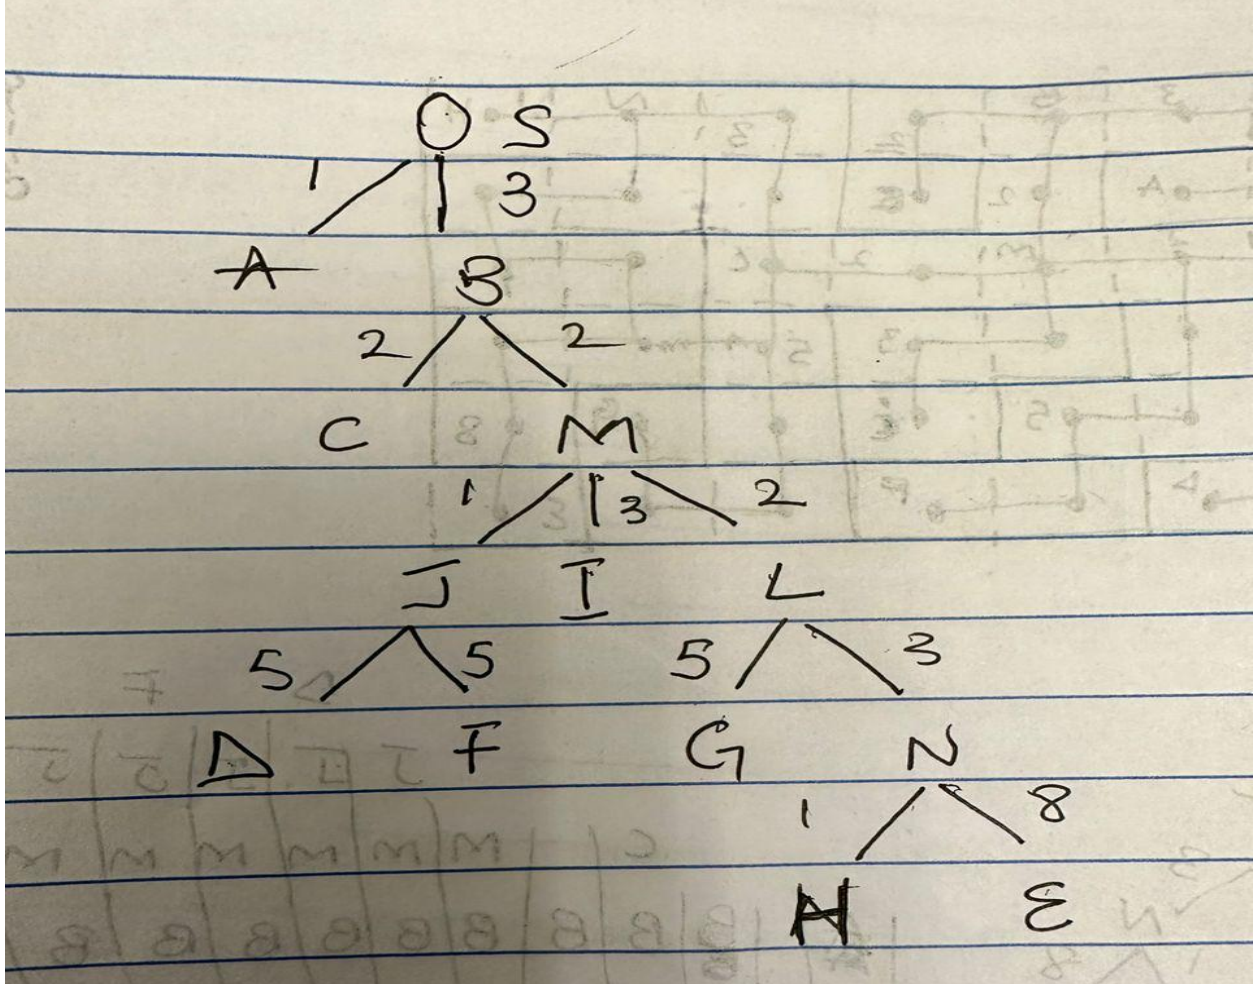 O S
1 3
A B
2 2
C M
1 3 2
J I L
5 5 5 3
D F G N
1 8
H E